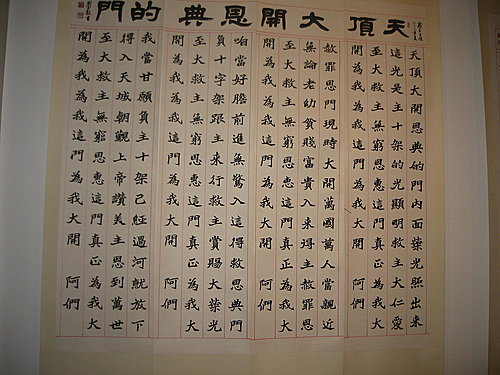 天頂大開恩典的門
天頂大開恩典的門內面榮光照出來
這光是主十架的光顯明救主大仁愛
至大救主無窮恩惠這門真正為我大
開為我為我這門為我大開 阿們
赦罪恩門現時大開萬國萬人當親近
無論老幼貧賤富貴入來得主赦罪恩
至大救主無窮恩惠這門真正為我大
開為我為我這門為我大開 阿們
咱當好膽前進無驚入這得救恩典門
負十字架跟主來行救主賞賜大榮光
至大救主無窮恩惠這門真正為我大
開為我為我這門為我大開 阿們
我當甘願負主十架已經過河就放下
得入天城朝覲上帝讚美主恩到萬世
至大救主無窮恩惠這門真正為我大
開為我為我這門為我大開 阿們